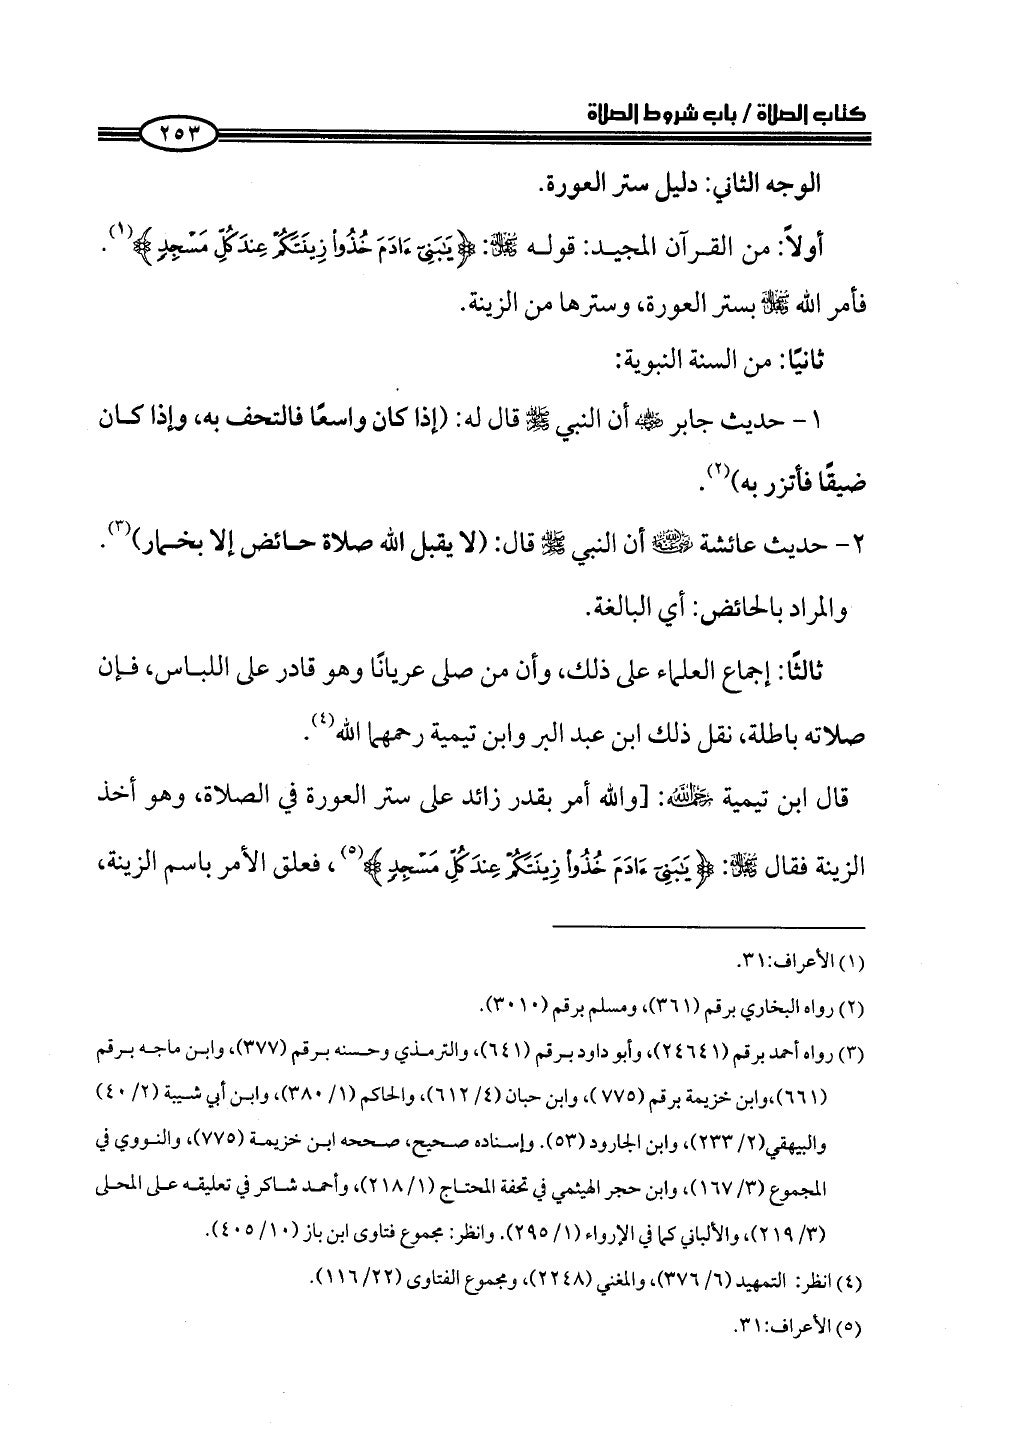 كتاب الصلاة / باب شروط الصلاة
٢٥٣
الوجه الثاني: دليل ستر العورة.
أولاً: من القرآن المجيد: قوله ﷻ: ﴿يَٰبَنِىٓ ءَادَمَ خُذُوا۟ زِينَتَكُمْ عِندَ كُلِّ مَسْجِدٍ﴾(١).
فأمر الله ﷻ بستر العورة، وسترها من الزينة.
ثانيًا: من السنة النبوية:
١- حديث جابر رضي الله عنه أن النبي ﷺ قال له: (إذا كان واسعًا فالتحف به، وإذا كان
ضيقًا فأتزر به)(٢).
٢- حديث عائشة رضي الله عنها أن النبي ﷺ قال: (لا يقبل الله صلاة حائض إلا بخمار)(٣).
والمراد بالحائض: أي البالغة.
ثالثًا: إجماع العلماء على ذلك، وأن من صلى عريانًا وهو قادر على اللباس، فإن
صلاته باطلة، نقل ذلك ابن عبد البر وابن تيمية رحمهما الله(٤).
قال ابن تيمية رحمه الله: [والله أمر بقدر زائد على ستر العورة في الصلاة، وهو أخذ
الزينة فقال ﷻ: ﴿يَٰبَنِىٓ ءَادَمَ خُذُوا۟ زِينَتَكُمْ عِندَ كُلِّ مَسْجِدٍ﴾(٥)، فعلق الأمر باسم الزينة،
(١) الأعراف:٣١.
(٢) رواه البخاري برقم (٣٦١)، ومسلم برقم (٣٠١٠).
(٣) رواه أحمد برقم (٢٤٦٤١)، وأبو داود برقم (٦٤١)، والترمذي وحسنه برقم (٣٧٧)، وابن ماجه برقم
(٦٦١)،وابن خزيمة برقم (٧٧٥)، وابن حبان (٤/ ٦١٢)، والحاكم (١/ ٣٨٠)، وابن أبي شيبة (٢/ ٤٠)
والبيهقي(٢/ ٢٣٣)، وابن الجارود (٥٣). وإسناده صحيح، صححه ابن خزيمة (٧٧٥)، والنووي في
المجموع (٣/ ١٦٧)، وابن حجر الهيثمي في تحفة المحتاج (١/ ٢١٨)، وأحمد شاكر في تعليقه على المحلى
(٣/ ٢١٩)، والألباني كما في الإرواء (١/ ٢٩٥). وانظر: مجموع فتاوى ابن باز (١٠/ ٤٠٥).
(٤) انظر: التمهيد (٦/ ٣٧٦)، والمغني (٢٢٤٨)، ومجموع الفتاوى (٢٢/ ١١٦).
(٥) الأعراف:٣١.